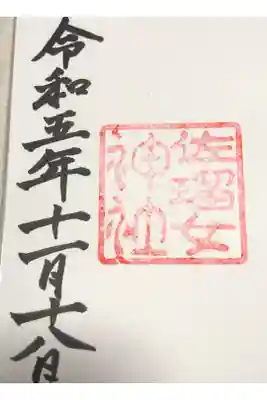 佐瑠女
神社
令和五年十一月十八日